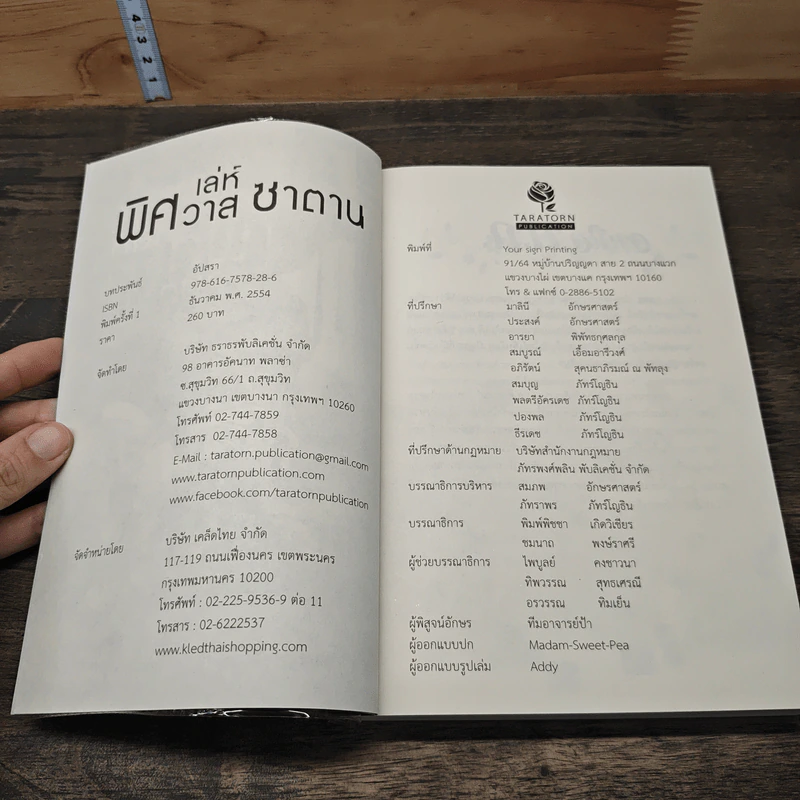 4 3 2 1
เล่ห์
พิศวาส ซาตาน
บทประพันธ์ อัปสรา
ISBN 978-616-7578-28-6
พิมพ์ครั้งที่ 1 ธันวาคม พ.ศ. 2554
ราคา 260 บาท
จัดทำโดย บริษัท ธราธรพับลิเคชั่น จำกัด
98 อาคารอัคนาท พลาซ่า
ซ.สุขุมวิท 66/1 ถ.สุขุมวิท
แขวงบางนา เขตบางนา กรุงเทพฯ 10260
โทรศัพท์ 02-744-7859
โทรสาร 02-744-7858
E-Mail : taratorn.publication@gmail.com
www.taratornpublication.com
www.facebook.com/taratornpublication
จัดจำหน่ายโดย บริษัท เคล็ดไทย จำกัด
117-119 ถนนเฟื่องนคร เขตพระนคร
กรุงเทพมหานคร 10200
โทรศัพท์ : 02-225-9536-9 ต่อ 11
โทรสาร : 02-6222537
www.kledthaishopping.com
TARATORN
PUBLICATION
พิมพ์ที่ Your sign Printing
91/64 หมู่บ้านปริญญดา สาย 2 ถนนบางแวก
แขวงบางไผ่ เขตบางแค กรุงเทพฯ 10160
โทร & แฟกซ์ 0-2886-5102
ที่ปรึกษา มาลินี อักษรศาสตร์
ประสงค์ อักษรศาสตร์
อารยา พิพัทธกุศลกุล
สมบูรณ์ เอื้อมอารีวงศ์
อภิรัตน์ สุคนธาภิรมณ์ ณ พัทลุง
สมบุญ ภัทร์โญธิน
พลตรีอัครเดช ภัทร์โญธิน
ปองพล ภัทร์โญธิน
ธีรเดช ภัทร์โญธิน
ที่ปรึกษาด้านกฎหมาย บริษัทสำนักงานกฎหมาย
ภัทรพงศ์พลิน พับลิเคชั่น จำกัด
บรรณาธิการบริหาร สมภพ อักษรศาสตร์
ภัทราพร ภัทร์โญธิน
บรรณาธิการ พิมพ์พิชชา เกิดวิเชียร
ชมนาถ พงษ์ราศรี
ผู้ช่วยบรรณาธิการ ไพบูลย์ คงชาวนา
ทิพวรรณ สุทธเศรณี
อรวรรณ ทิมเย็น
ผู้พิสูจน์อักษร ทีมอาจารย์ป้า
ผู้ออกแบบปก Madam-Sweet-Pea
ผู้ออกแบบรูปเล่ม Addy